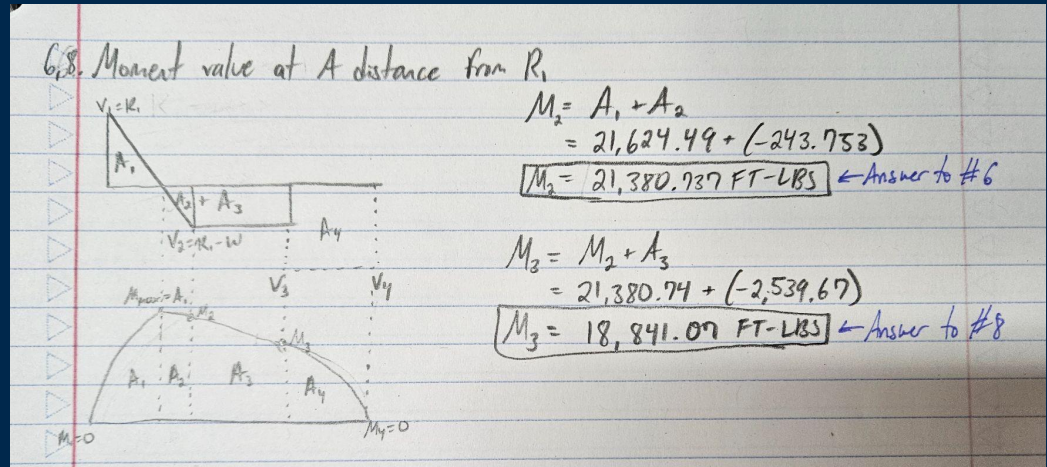 6,8. Moment value at A distance from R₁
V₁=R₁
A₁
A₂ + A₃
V₂=R₁-W
A₄
V₃
V₄
Mmax=A₁
M₂
M₃
A₁
A₂
A₃
A₄
M₁=0
M₄=0
M₂= A₁ + A₂
= 21,624.49 + (-243.753)
M₂= 21,380.737 FT-LBS ← Answer to #6
M₃ = M₂ + A₃
= 21,380.74 + (-2,539.67)
M₃ = 18,841.07 FT-LBS ← Answer to #8